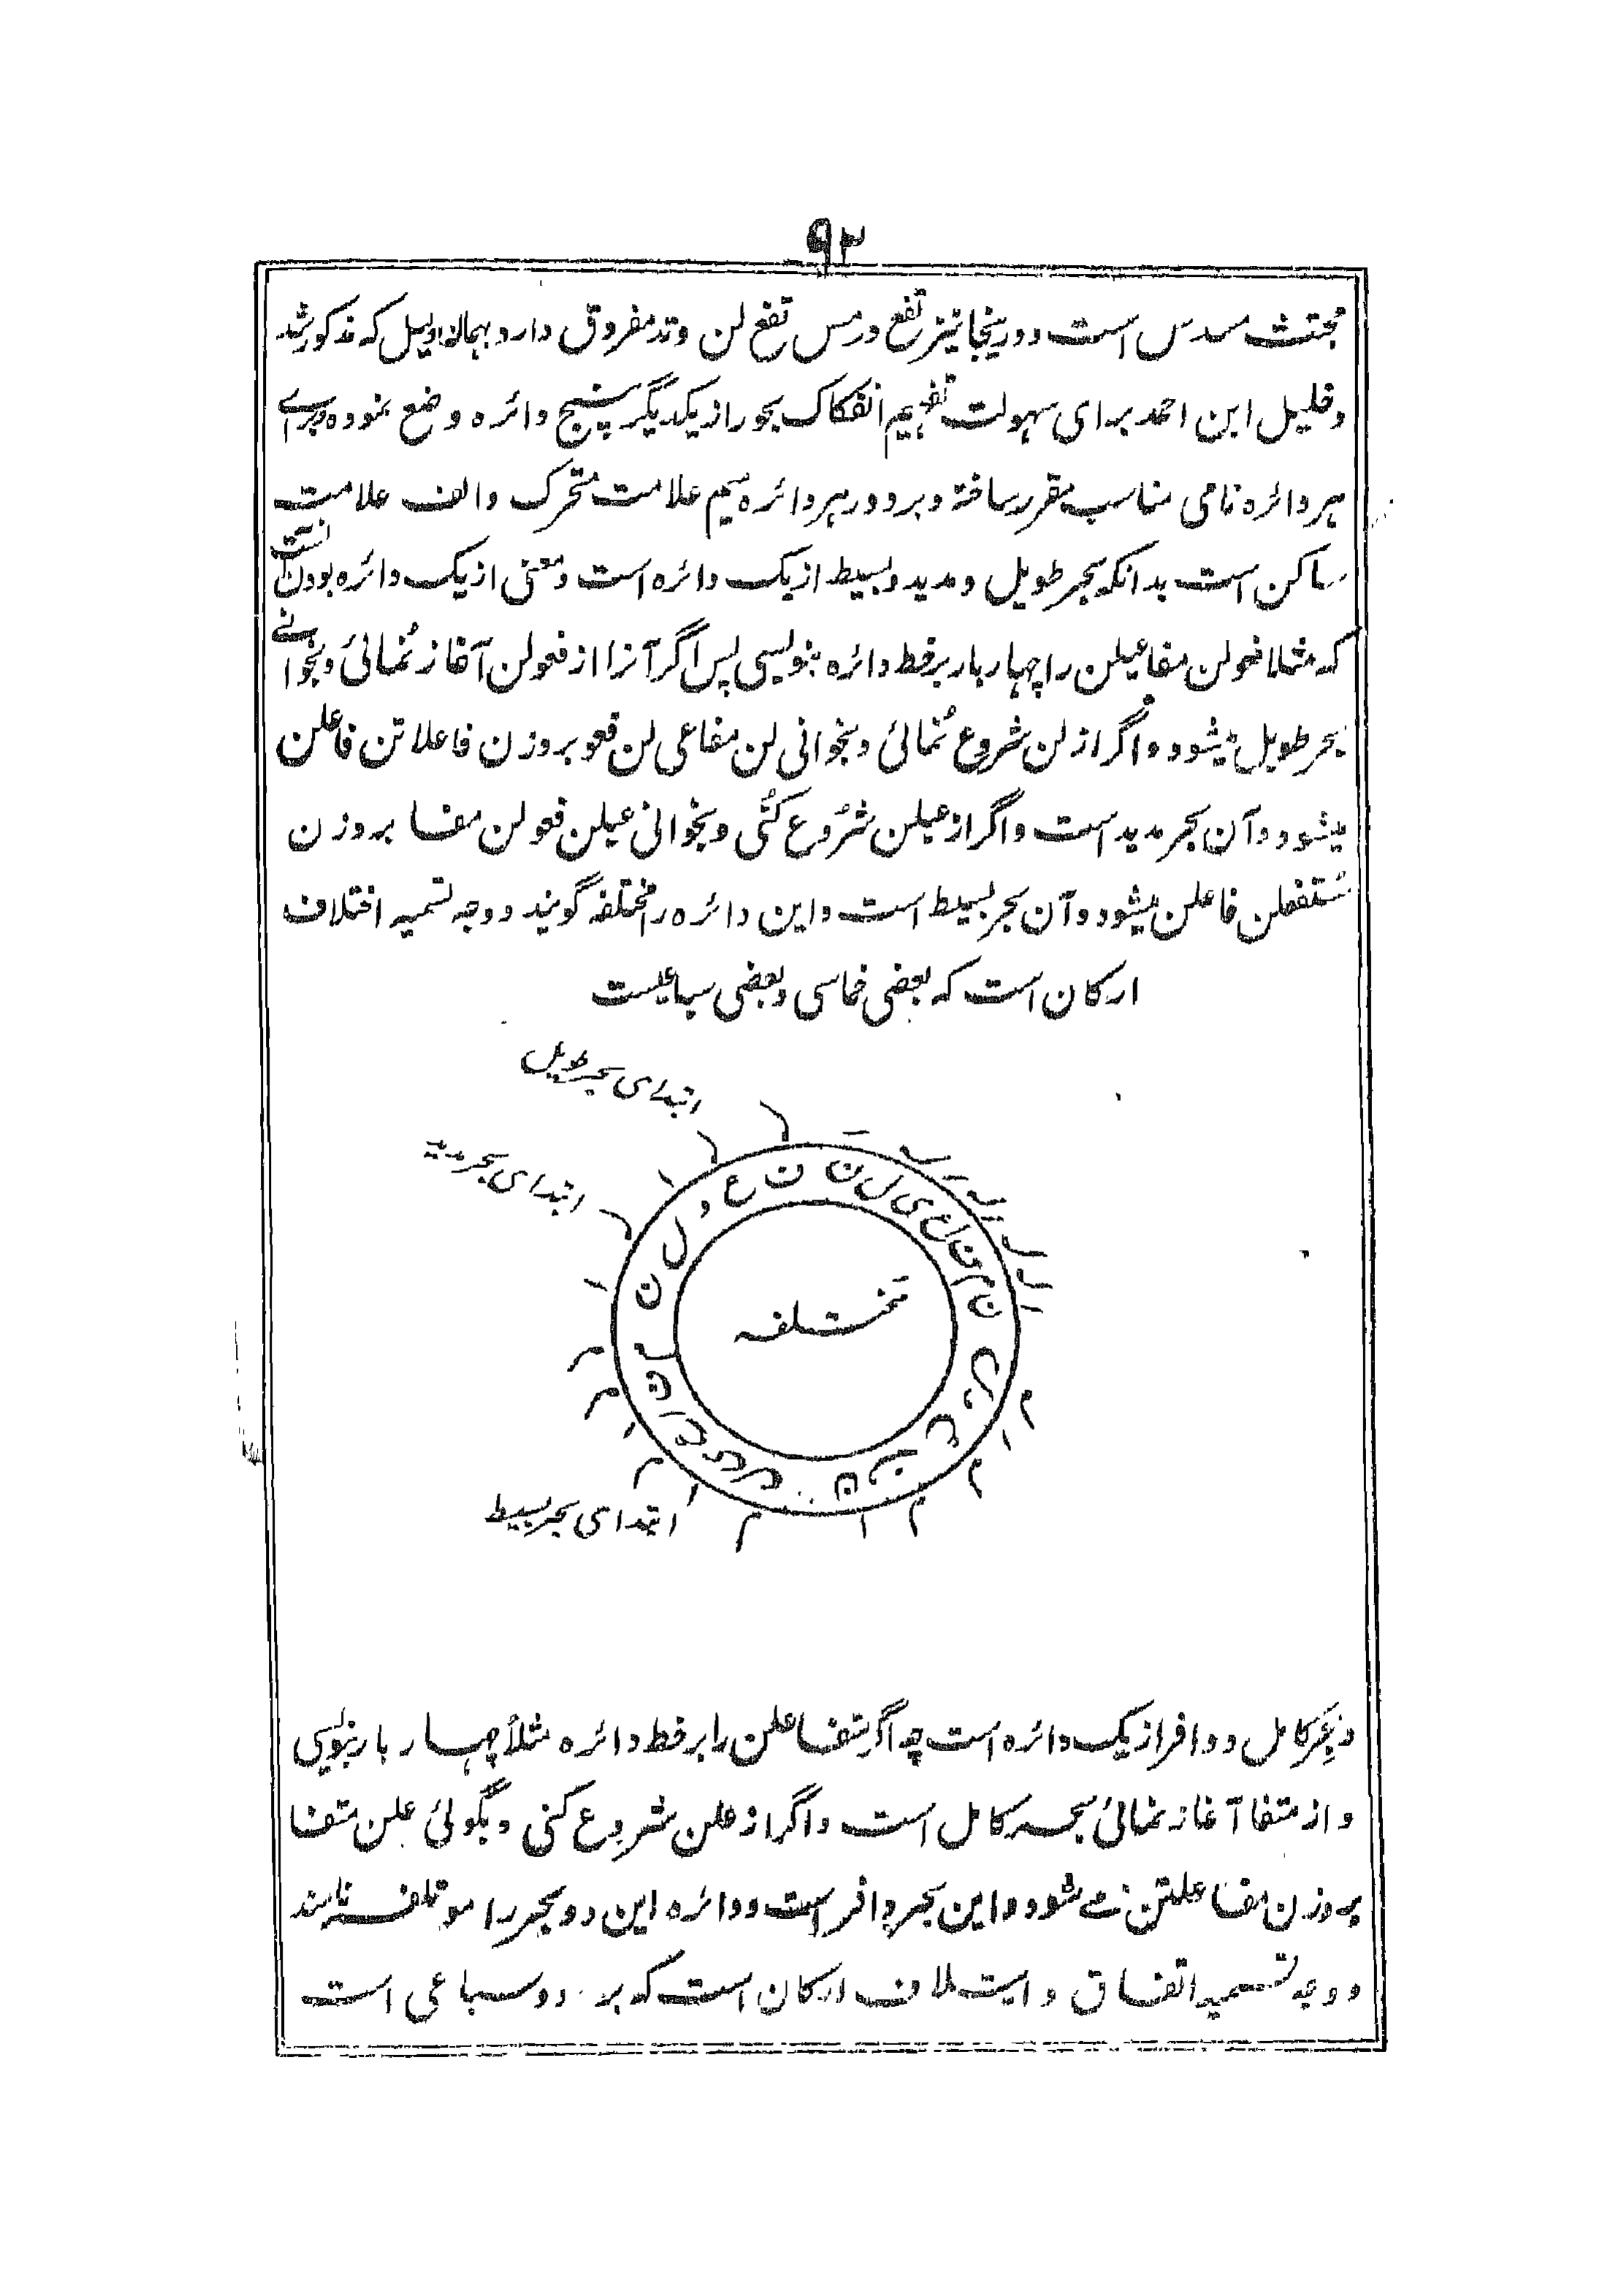 ۹۲
مجتث مسدس است و درینجا نیز تفع در مس تفع لن وتد مفروق دارد بهمان دلیل که مذکور شد
و خلیل ابن احمد برای سهولت تفهیم انفکاک بحور از یکدیگر پنج دائره وضع نموده و برائے
هر دائره نامی مناسب مقرر ساخته و بر دور هر دائره میم علامت متحرک و الف علامت
ساکن است بدانکه بحر طویل و مدید و بسیط از یک دائره است و معنی از یک دائره بودن اینست
که مثلا فعولن مفاعیلن را چهار بار بر خط دائره بنویسی پس اگر آنرا از فعولن آغاز نمائی و بخوانے
بحر طویل میشود و اگر از لن شروع نمائی و بخوانی لن مفاعی لن فعو بروزن فاعلاتن فاعلن
میشود و آن بحر مدید است و اگر از عیلن شروع کنی و بخوانی عیلن فعولن مفا بروزن
مستفعلن فاعلن میشود و آن بحر بسیط است و این دائره را مختلفه گویند و وجه تسمیه اختلاف
ارکان است که بعضی خماسی و بعضی سباعیست
ابتدای بحر طویل
ابتدای بحر مدید
مختلفه
ابتدای بحر بسیط
و بحر کامل و وافر از یک دائره است چه اگر متفاعلن را بر خط دائره مثلاً چهار بار بنویسی
و از متفا آغاز نمائی بحر کامل است و اگر از علن شروع کنی و بگوئی علن متفا
بروزن مفاعلتن مے شود و این بحر وافر است و دائره این دو بحر را موتلفه نامند
و وجه تسمیه اتفاق و ایتلاف ارکان است که هر دو سباعی است